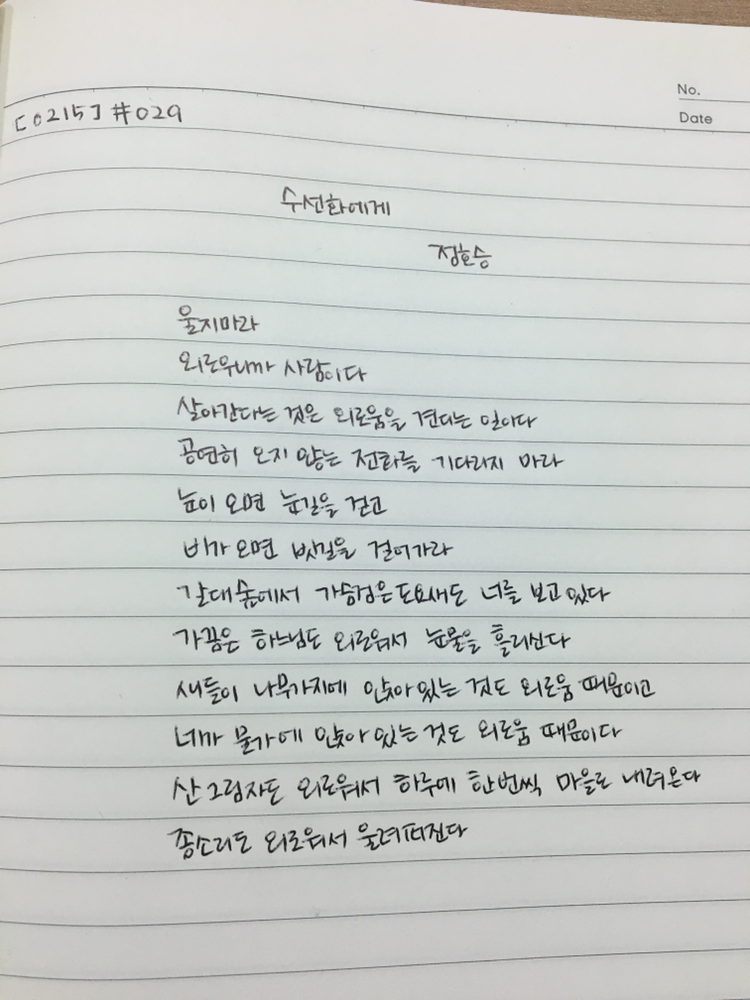 No.
Date
[0215] #029
수선화에게
정호승
울지마라
외로우니까 사람이다
살아간다는 것은 외로움을 견디는 일이다
공연히 오지 않는 전화를 기다리지 마라
눈이 오면 눈길을 걷고
비가 오면 빗길을 걸어가라
갈대숲에서 가슴검은도요새도 너를 보고 있다
가끔은 하느님도 외로워서 눈물을 흘리신다
새들이 나무가지에 앉아 있는 것도 외로움 때문이고
네가 물가에 앉아 있는 것도 외로움 때문이다
산 그림자도 외로워서 하루에 한번씩 마을로 내려온다
종소리도 외로워서 울려퍼진다